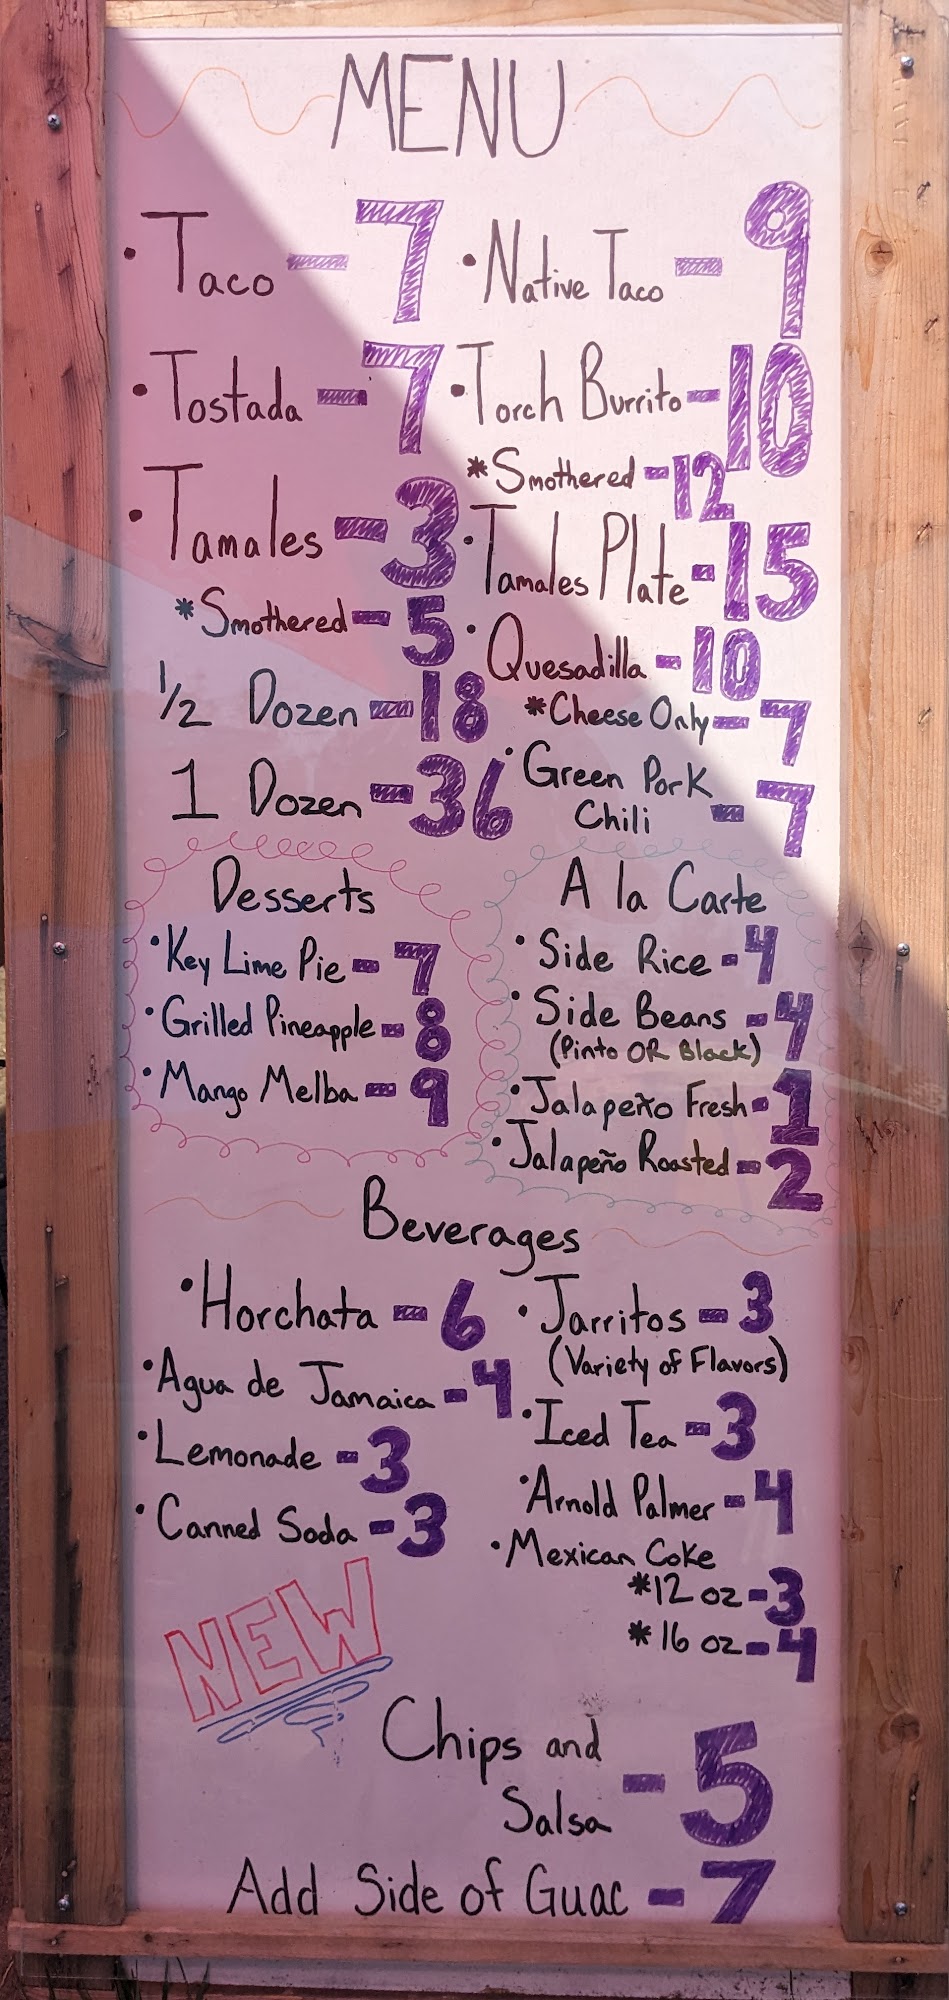 MENU
• Taco - 7
• Tostada - 7
• Tamales - 3
* Smothered - 5
1/2 Dozen - 18
1 Dozen - 36
• Native Taco - 9
• Torch Burrito - 10
* Smothered - 12
• Tamales Plate - 15
• Quesadilla - 10
* Cheese Only - 7
• Green Pork
Chili - 7
Desserts
• Key Lime Pie - 7
• Grilled Pineapple - 8
• Mango Melba - 9
A la Carte
• Side Rice - 4
• Side Beans - 4
(Pinto OR Black)
• Jalapeño Fresh - 1
• Jalapeño Roasted - 2
Beverages
• Horchata - 6
• Agua de Jamaica - 4
• Lemonade - 3
• Canned Soda - 3
• Jarritos - 3
(Variety of Flavors)
• Iced Tea - 3
• Arnold Palmer - 4
• Mexican Coke
* 12 oz - 3
* 16 oz - 4
NEW
Chips and
Salsa - 5
Add Side of Guac - 7